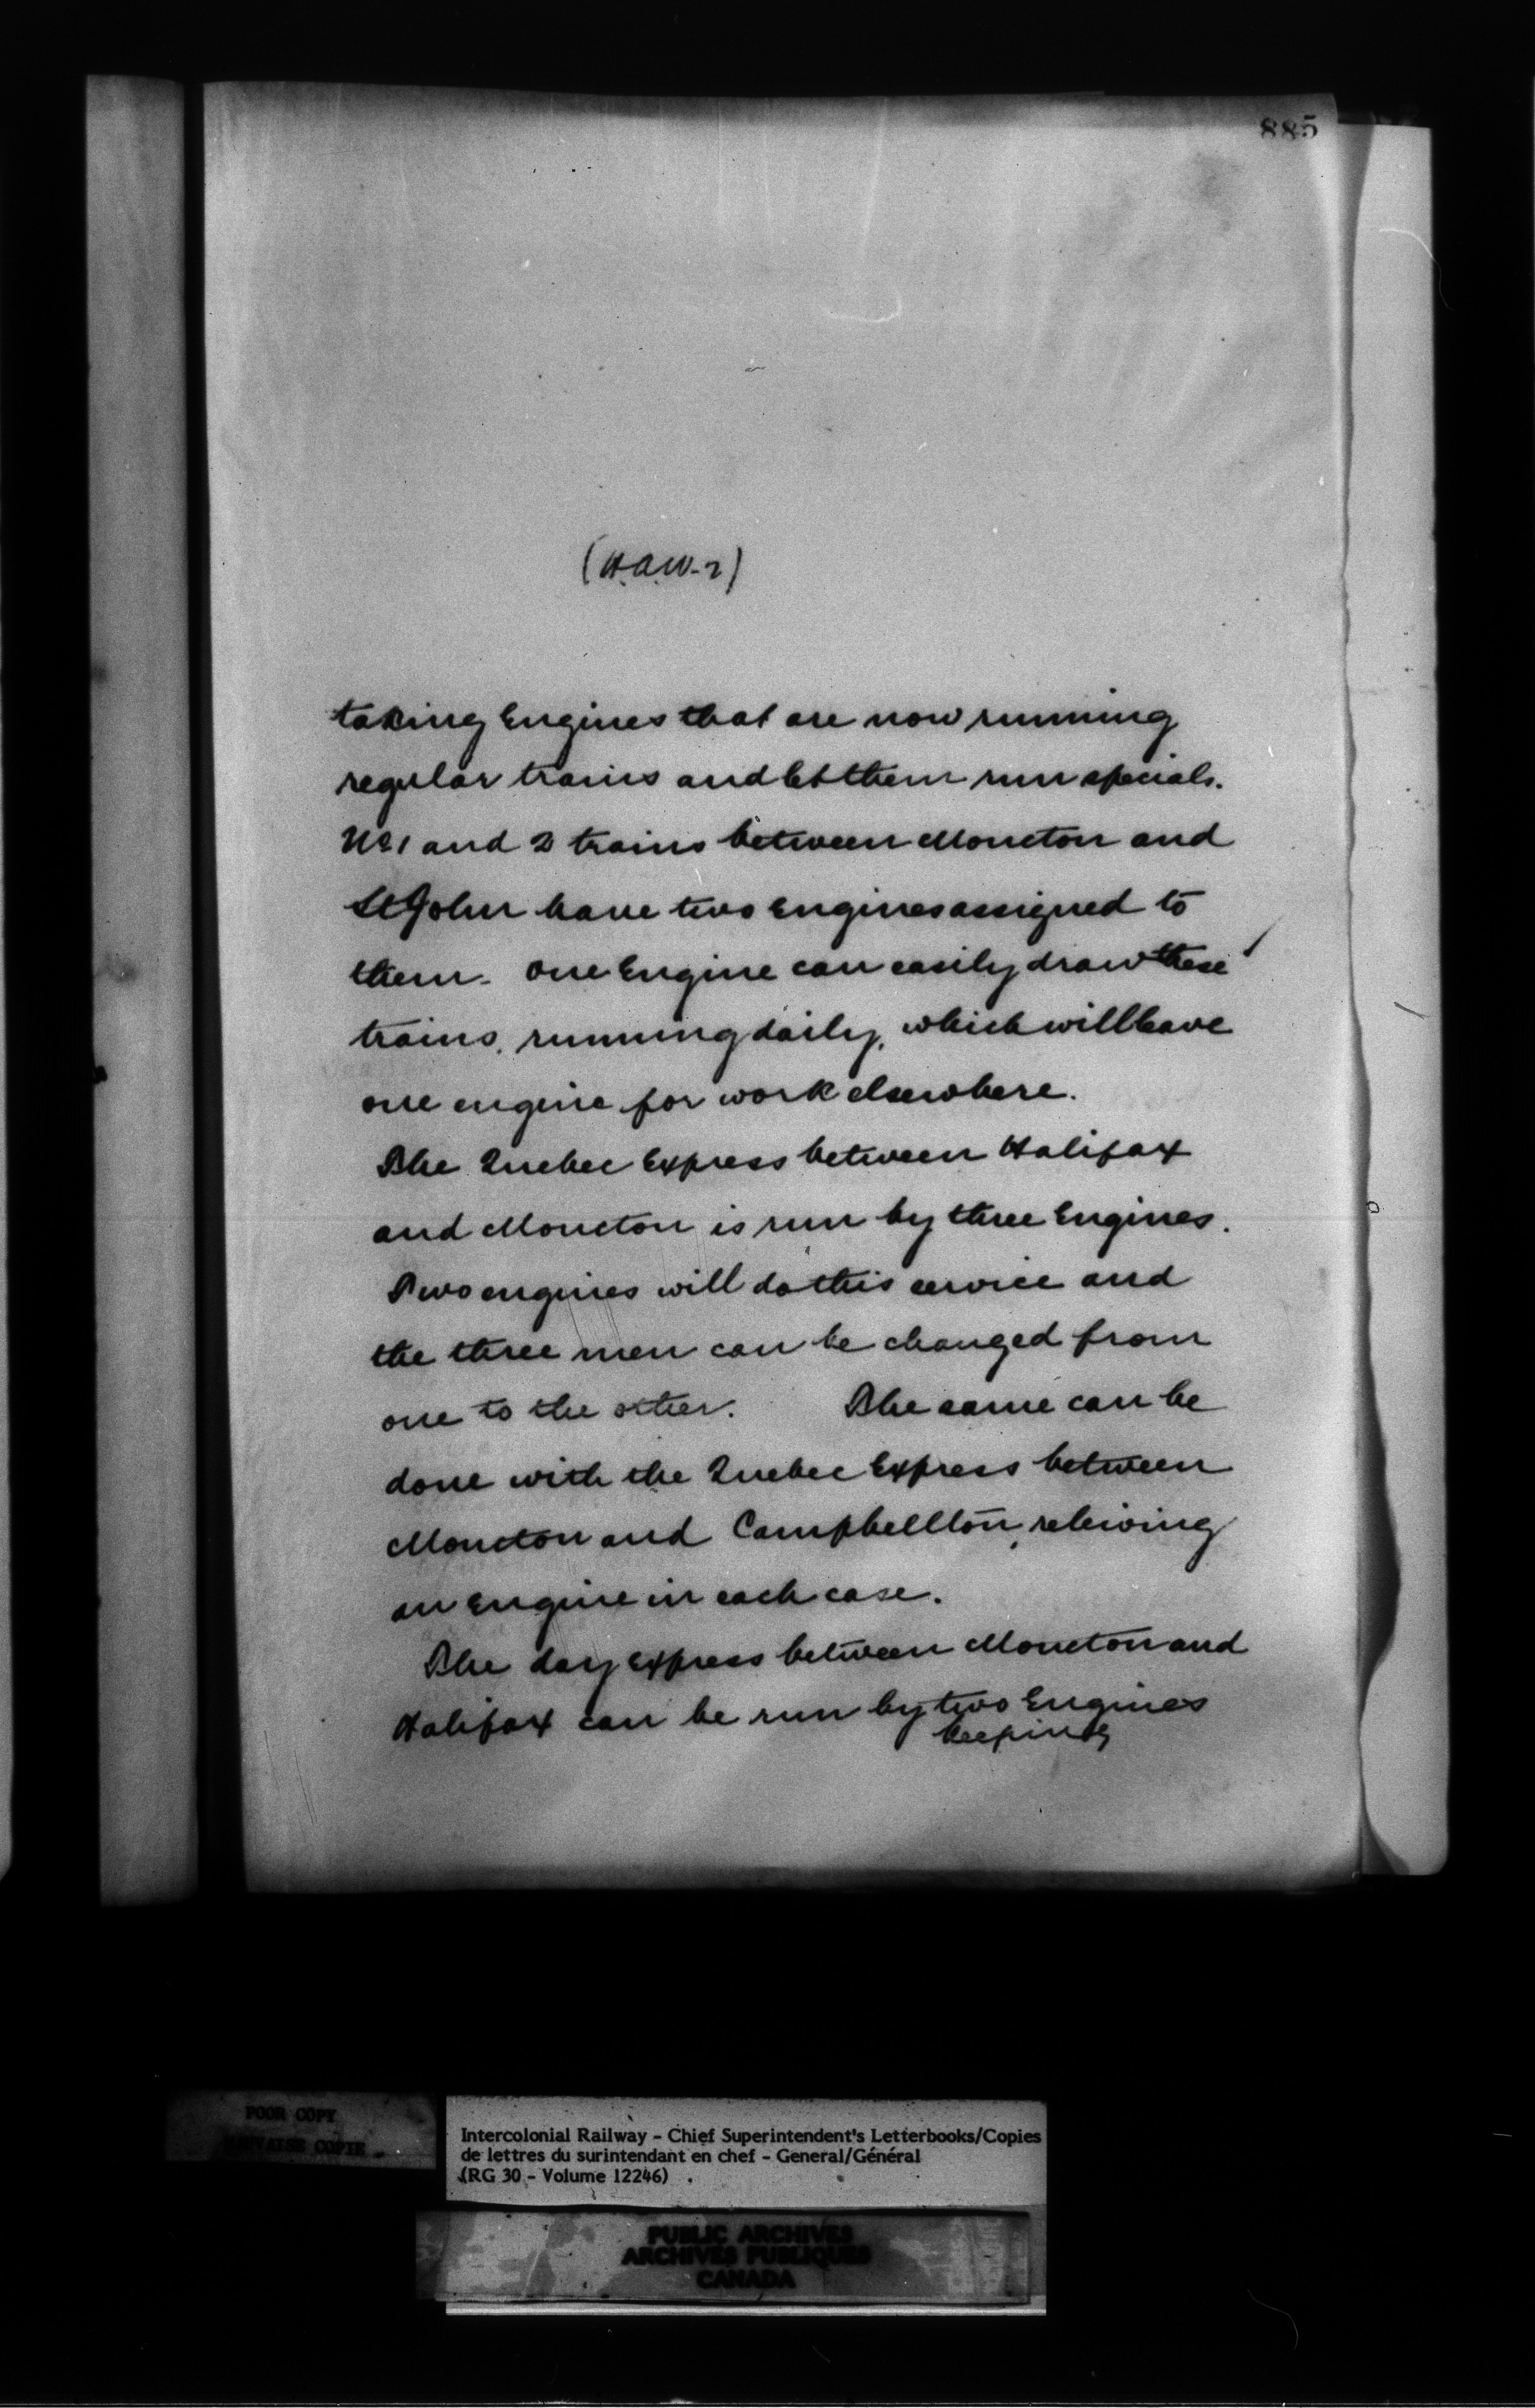 885
(H.A.W-2)
taking Engines that are now running
regular trains and let them run specials.
No 1 and 2 trains between Moncton and
St John have two Engines assigned to
them. One Engine can easily draw these
trains, running daily, which will leave
one engine for work elsewhere.
The Quebec Express between Halifax
and Moncton is run by three Engines.
Two engines will do this service and
the three men can be changed from
one to the other. The same can be
done with the Quebec Express between
Moncton and Campbellton, releiving
an Engine in each case.
The day Express between Moncton and
Halifax can be run by two Engines
keeping
POOR COPY
MAUVAISE COPIE
Intercolonial Railway - Chief Superintendent's Letterbooks/Copies
de lettres du surintendant en chef - General/Général
(RG 30 - Volume 12246)
PUBLIC ARCHIVES
ARCHIVES PUBLIQUES
CANADA